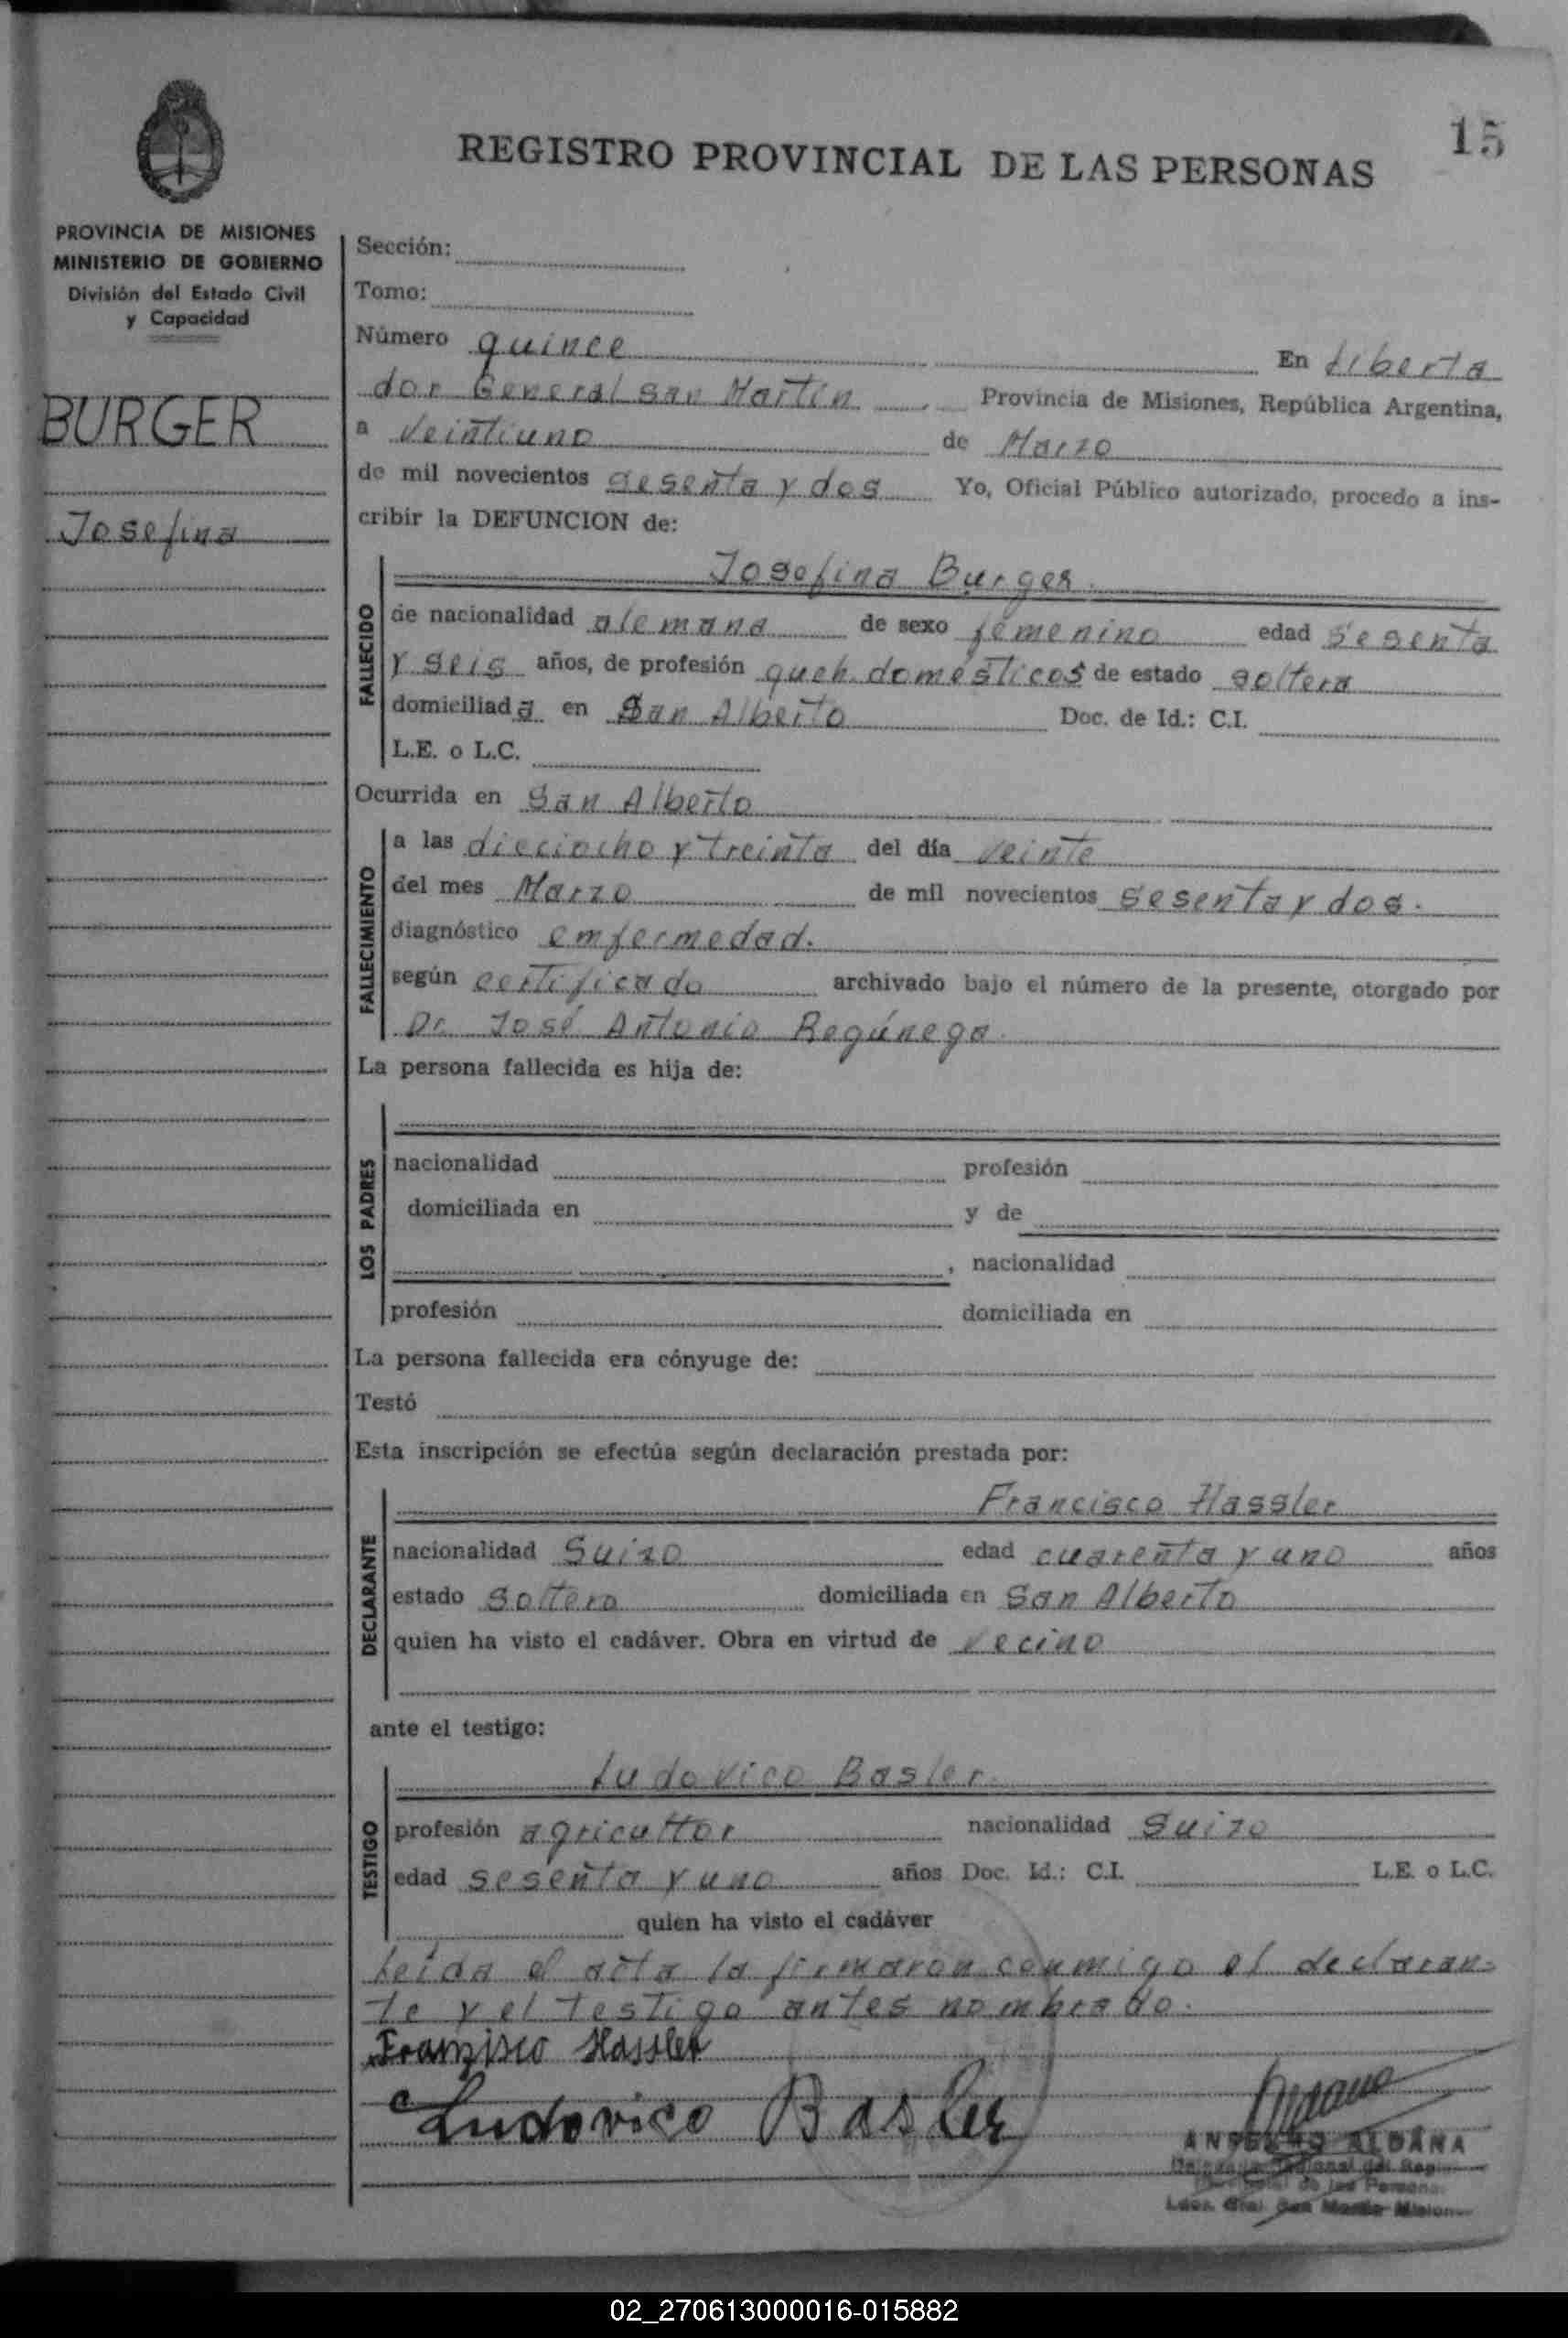 15
REGISTRO PROVINCIAL DE LAS PERSONAS
PROVINCIA DE MISIONES
MINISTERIO DE GOBIERNO
División del Estado Civil
y Capacidad
BURGER
Josefina
Sección:
Tomo:
Número quince En Liberta
dor General San Martín Provincia de Misiones, República Argentina,
a Veintiuno de Marzo
de mil novecientos sesenta y dos Yo, Oficial Público autorizado, procedo a ins-
cribir la DEFUNCION de:
Josefina Burger.
FALLECIDO
de nacionalidad alemana de sexo femenino edad sesenta
y seis años, de profesión queh. domésticos de estado soltera
domiciliada en San Alberto Doc. de Id.: C.I.
L.E. o L.C.
Ocurrida en San Alberto
FALLECIMIENTO
a las dieciocho y treinta del día veinte
del mes Marzo de mil novecientos sesenta y dos.
diagnóstico emfermedad.
según certificado archivado bajo el número de la presente, otorgado por
Dr. José Antonio
La persona fallecida es hija de:
LOS PADRES
nacionalidad profesión
domiciliada en y de
, nacionalidad
profesión domiciliada en
La persona fallecida era cónyuge de:
Testó
Esta inscripción se efectúa según declaración prestada por:
Francisco Hassler
DECLARANTE
nacionalidad Suizo edad cuarenta y uno años
estado soltero domiciliada en San Alberto
quien ha visto el cadáver. Obra en virtud de vecino
ante el testigo:
Ludovico Basler.
TESTIGO
profesión agricultor nacionalidad Suizo
edad sesenta y uno años Doc. Id.: C.I. L.E. o L.C.
quien ha visto el cadáver
Leída el acta la firmaron conmigo el declaran-
te y el testigo antes nombrado.
Franzisco Hassler
Ludovico Basler
ANSELMO ALDANA
02_270613000016-015882